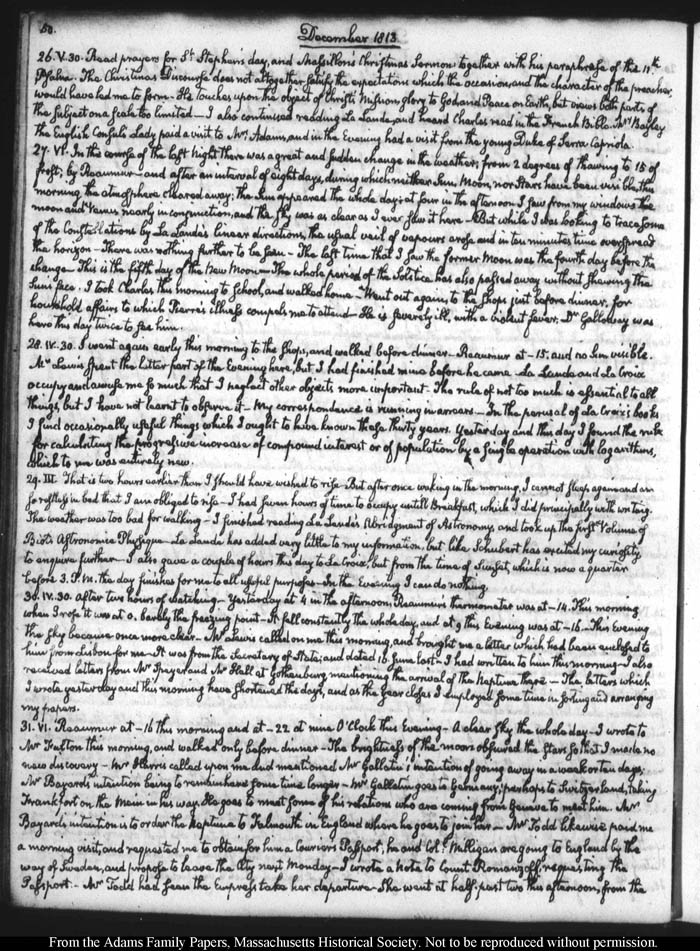 50.
December 1813.
26. V.30. Read prayers for St. Stephen's day, and Massillon's Christmas Sermon together with his paraphrase of the 11th.
Psalm. The Christmas Discourse does not altogether satisfy the expectations which the occasion, and the character of the preacher
would have led me to form. He touches upon the object of Christ's Mission, glory to God and Peace on Earth, but views both parts of
the subject on a scale too limited — I also continued reading La Lande, and heard Charles read in the French Bible. Mrs. Bayley
the English Consul's Lady paid a visit to Mrs. Adams, and in the Evening had a visit from the young Duke of Serra Capriola.
27. VI. In the course of the last Night there was a great and sudden change in the weather; from 2 degrees of thawing to 15 of
frost, by Reaumur — and after an interval of eight days, during which neither Sun, Moon, nor Stars have been visible, this
morning the atmosphere cleared away; the Sun appeared the whole day; at four in the afternoon I saw from my windows the
moon and Venus nearly in conjunction, and the sky was as clear as I ever saw it here — But while I was looking to trace some
of the Constellations by La Lande's linear directions, the usual veil of vapours arose and in ten minutes time overspread
the horizon — There was nothing further to be seen — The last time that I saw the former Moon was the fourth day before the
change — This is the fifth day of the New Moon — The whole period of the Solstice has also passed away without shewing the
Sun's face. I took Charles this morning to School, and walked home — Went out again, to the shops just before dinner, for
household affairs to which Pierre's illness compels me to attend — He is severely ill, with a violent fever. Dr. Galloway was
here this day twice to see him.
28. IV.30. I went again early this morning to the shops, and walked before dinner. Reaumur at -15. and no Sun visible.
Mr. Lewis spent the latter part of the evening here, but I had finished mine before he came — La Lande and La Croix
occupy and amuse me so much that I neglect other objects more important. The rule of not too much is essential to all
things, but I have not learnt to observe it — My correspondence is running in arrears — In the perusal of La Croix's books
I find occasionally useful things which I ought to have known these thirty years. Yesterday and this day I found the rule
for calculating the progressive increase of compound interest or of population by a single operation with logarithms,
which to me was entirely new.
29. III. That is two hours earlier than I should have wished to rise. But after once waking in the morning, I cannot sleep again and am
so restless in bed that I am obliged to rise — I had seven hours of time to occupy untill Breakfast, which I did principally with writing.
The weather was too bad for walking — I finished reading La Lande's Abridgment of Astronomy, and took up the first Volume of
Biot's Astronomie Physique — La Lande has added very little to my information, but like Schubert has excited my curiosity
to enquire further — I also gave a couple of hours this day to La Croix, but from the time of Sunset, which is now a quarter
before 3. P.M. the day finishes for me to all useful purposes — In the Evening I can do nothing.
30. IV.30. after two hours of watching — Yesterday at 4 in the afternoon, Reaumur's thermometer was at -14. This morning
when I rose it was at 0. barely the freezing point — It fell constantly the whole day, and at 9 this Evening was at -16. — This Evening
the sky became once more clear — Mr. Lewis called on me this morning, and brought me a letter which had been enclosed to
him from Lisbon for me — It was from the Secretary of State, and dated 16. June last — I had written to him this morning — I also
received letters from Mr. Speyer and Mr. Hall at Gothenburg, mentioning the arrival of the Neptune there — The letters which
I wrote yesterday and this morning have shortened the days, and as the year closes I employed some time in sorting and arranging
my papers.
31. VI. Reaumur at -16 this morning and at -22. at nine O'Clock this Evening — A clear sky the whole day — I wrote to
Mr. Fulton this morning, and walked only before dinner — The brightness of the moon obscured the stars so that I made no
new discovery — Mr. Harris called upon me and mentioned Mr. Gallatin's intention of going away in a week or ten days;
Mr. Bayard's intention being to remain here some time longer — Mr. Gallatin goes to Germany, perhaps to Switzerland, taking
Frankfort on the Main in his way. He goes to meet some of his relations who are coming from Geneva to meet him. Mr.
Bayard's intention is to order the Neptune to Falmouth in England where he goes to join her — Mr. Todd likewise paid me
a morning visit, and requested me to obtain for him a Courier's Passport, he and Coll. Milligan are going to England by the
way of Sweden, and propose to leave the City next Monday — I wrote a Note to Count Romanzoff, requesting the
Passport. — Mr. Todd had seen the Empress take her departure — She went at half past two this afternoon, from the
From the Adams Family Papers, Massachusetts Historical Society. Not to be reproduced without permission.